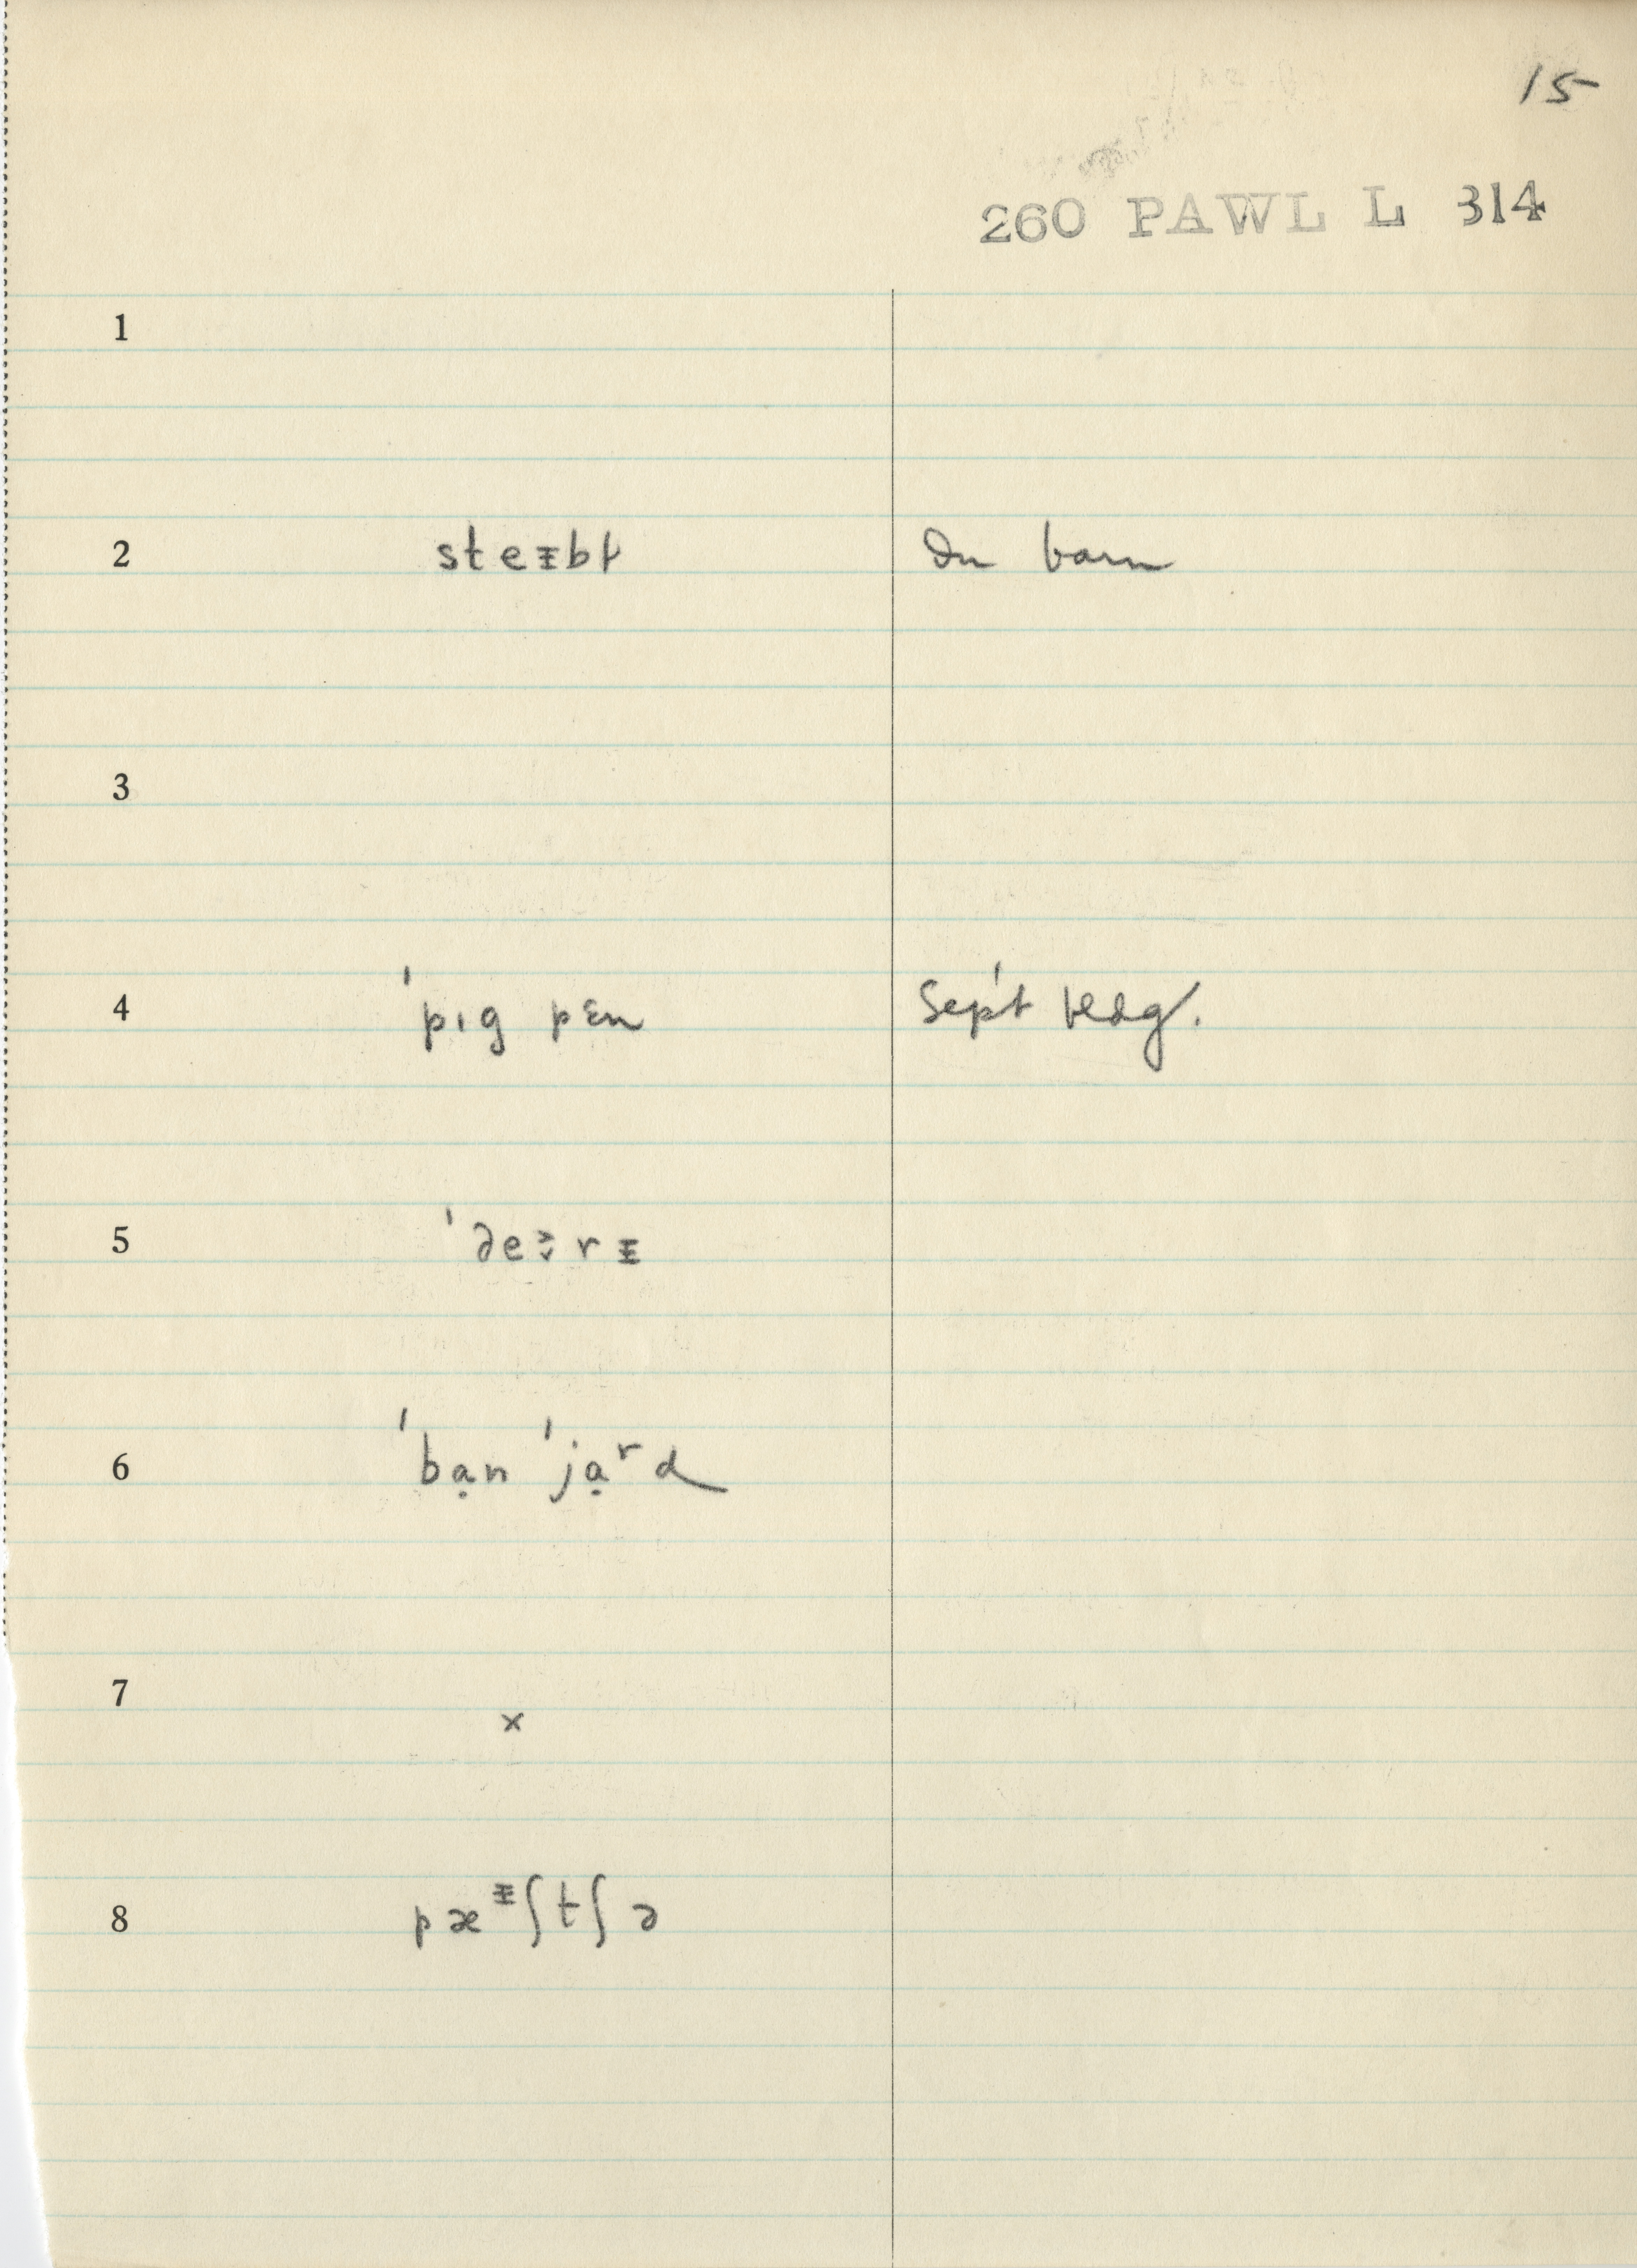 15
260 PAWL L 314
1
2 steᵻbɫ In barn
3
4 ˈpɪg pɛn Sep't bldg.
5 ˈde rᵻ
6 ˈbạn ˈjạʳd
7 ×
8 pæᵻʃtʃə